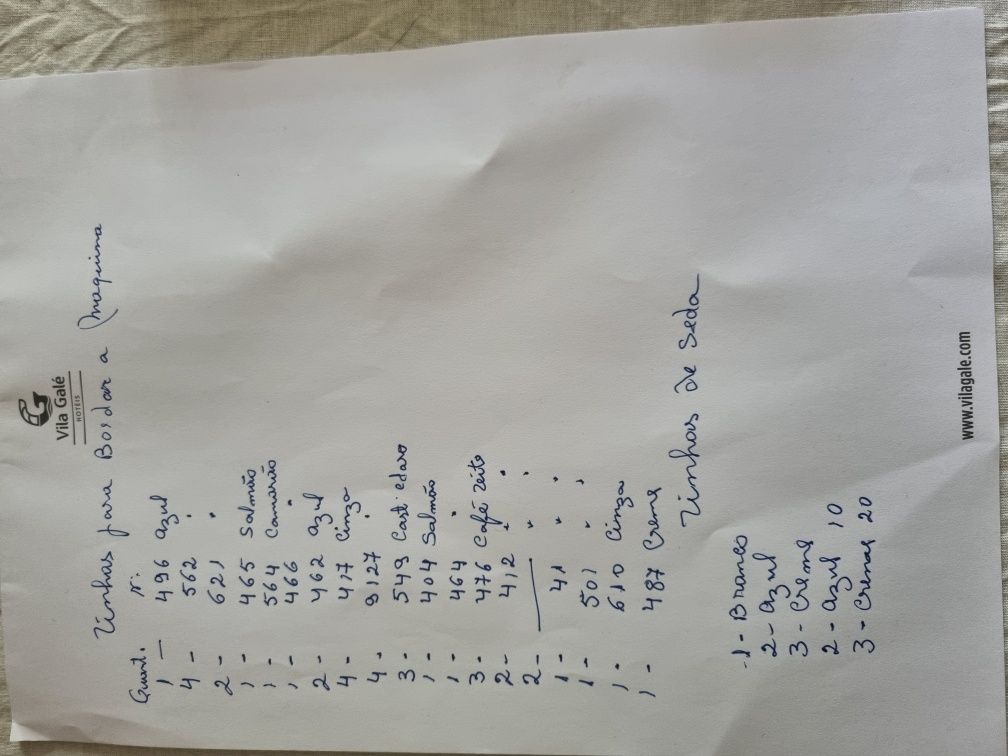 Vila Galé
HOTÉIS
Linhas para Bordar a Maquina
Quant. N:
1 — 496 azul
4 - 562 "
2 - 621 "
1 - 465 Salmão
1 - 564 Camarão
1 - 466 "
2 - 462 azul
4 - 417 Cinza
4 - 9127 "
3 - 549 Cast. claro
1 - 404 Salmão
1 - 464 "
3 - 476 Café leite
2 - 412 " "
2 - —— " "
1 - 41 " "
1 - 501 " "
1 - 610 Cinza
1 - 487 Creme
Linhas de Seda
1 - Branco
2 - azul
3 - Creme
2 - azul 10
3 - Creme 20
www.vilagale.com